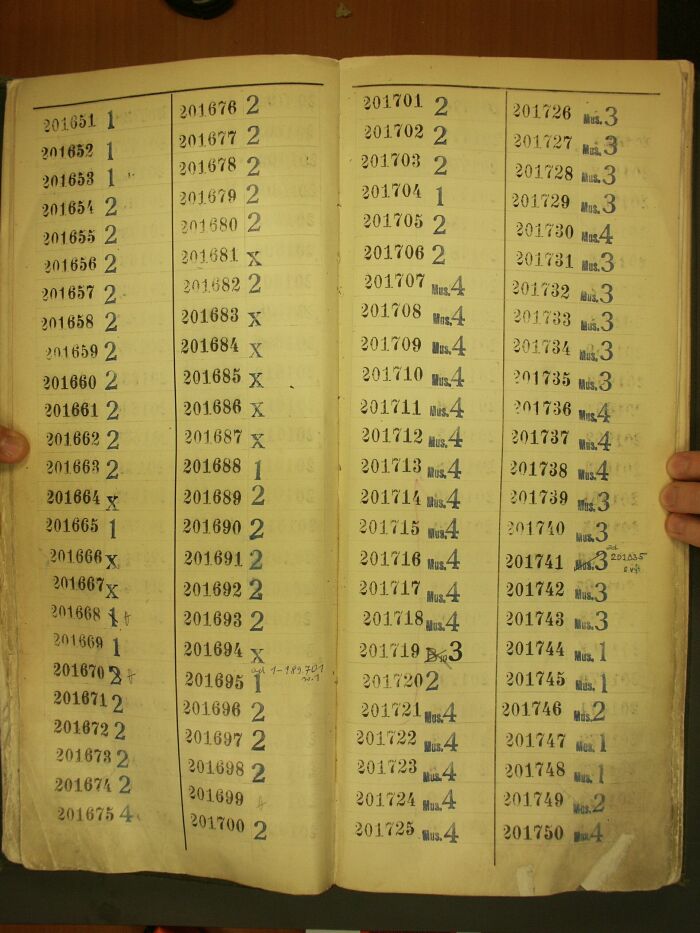 201651 1
201652 1
201653 1
201654 2
201655 2
201656 2
201657 2
201658 2
201659 2
201660 2
201661 2
201662 2
201663 2
201664 x
201665 1
201666 x
201667 x
201668 1
201669 1
201670 2
201671 2
201672 2
201673 2
201674 2
201675 4
201676 2
201677 2
201678 2
201679 2
201680 2
201681 x
201682 2
201683 x
201684 x
201685 x
201686 x
201687 x
201688 1
201689 2
201690 2
201691 2
201692 2
201693 2
201694 x
201695 1
201696 2
201697 2
201698 2
201699
201700 2
201701 2
201702 2
201703 2
201704 1
201705 2
201706 2
201707 Mus. 4
201708 Mus. 4
201709 Mus. 4
201710 Mus. 4
201711 Mus. 4
201712 Mus. 4
201713 Mus. 4
201714 Mus. 4
201715 Mus. 4
201716 Mus. 4
201717 Mus. 4
201718 Mus. 4
201719 3
201720 2
201721 Mus. 4
201722 Mus. 4
201723 Mus. 4
201724 Mus. 4
201725 Mus. 4
201726 Mus. 3
201727 Mus. 3
201728 Mus. 3
201729 Mus. 3
201730 Mus. 4
201731 Mus. 3
201732 Mus. 3
201733 Mus. 3
201734 Mus. 3
201735 Mus. 3
201736 Mus. 4
201737 Mus. 4
201738 Mus. 4
201739 Mus. 3
201740 Mus. 3
201741 Mus. 3
201742 Mus. 3
201743 Mus. 3
201744 Mus. 1
201745 Mus. 1
201746 Mus. 2
201747 Mus. 1
201748 Mus. 1
201749 Mus. 2
201750 Mus. 4